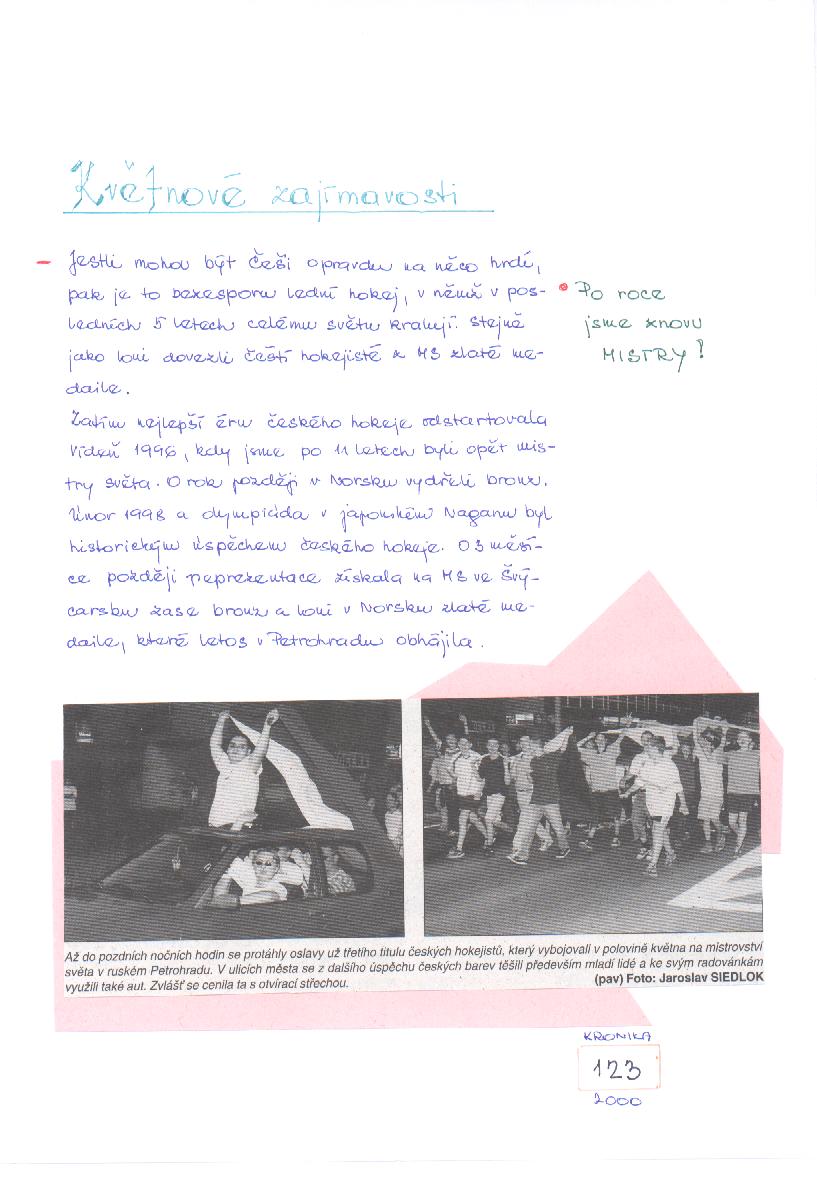 Květnové zajímavosti
- Jestli mohou být Češi opravdu na něco hrdí,
pak je to bezesporu lední hokej, v němž v pos-
ledních 5 letech celému světu kralují. Stejně
jako loni dovezli čeští hokejisté z MS zlaté me-
daile.
• Po roce
jsme znovu
MISTRY!
Zatím nejlepší éru českého hokeje odstartovala
Vídeň 1996, kdy jsme po 11 letech byli opět mis-
try světa. O rok později v Norsku vydřeli bronz.
Únor 1998 a olympiáda v japonském Naganu byl
historickým úspěchem českého hokeje. O 3 měsí-
ce později reprezentace získala na MS ve Švý-
carsku zase bronz a loni v Norsku zlaté me-
daile, které letos v Petrohradu obhájila.
Až do pozdních nočních hodin se protáhly oslavy už třetího titulu českých hokejistů, který vybojovali v polovině května na mistrovství
světa v ruském Petrohradu. V ulicích města se z dalšího úspěchu českých barev těšili především mladí lidé a ke svým radovánkám
využili také aut. Zvlášť se cenila ta s otvírací střechou. (pav) Foto: Jaroslav SIEDLOK
KRONIKA
123
2000